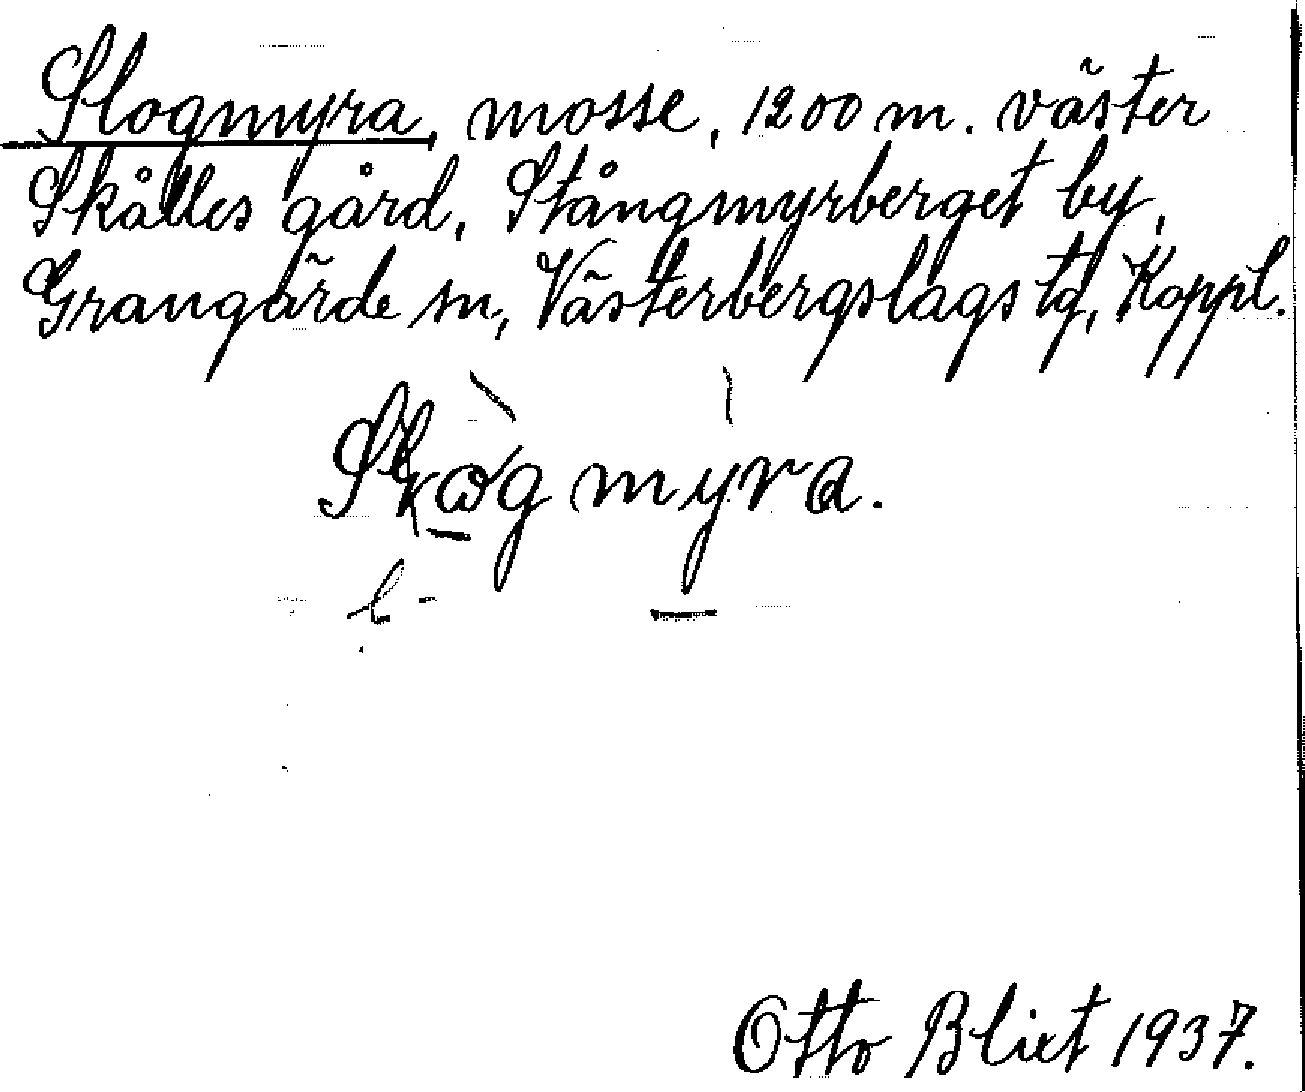 Slogmyra, mosse, 1200 m. väster
Skålles gård, Stångmyrberget by,
Grangärde sn, Västerbergslags tg, Koppl.
Skogmyra.
l-
Otto Blixt 1937.